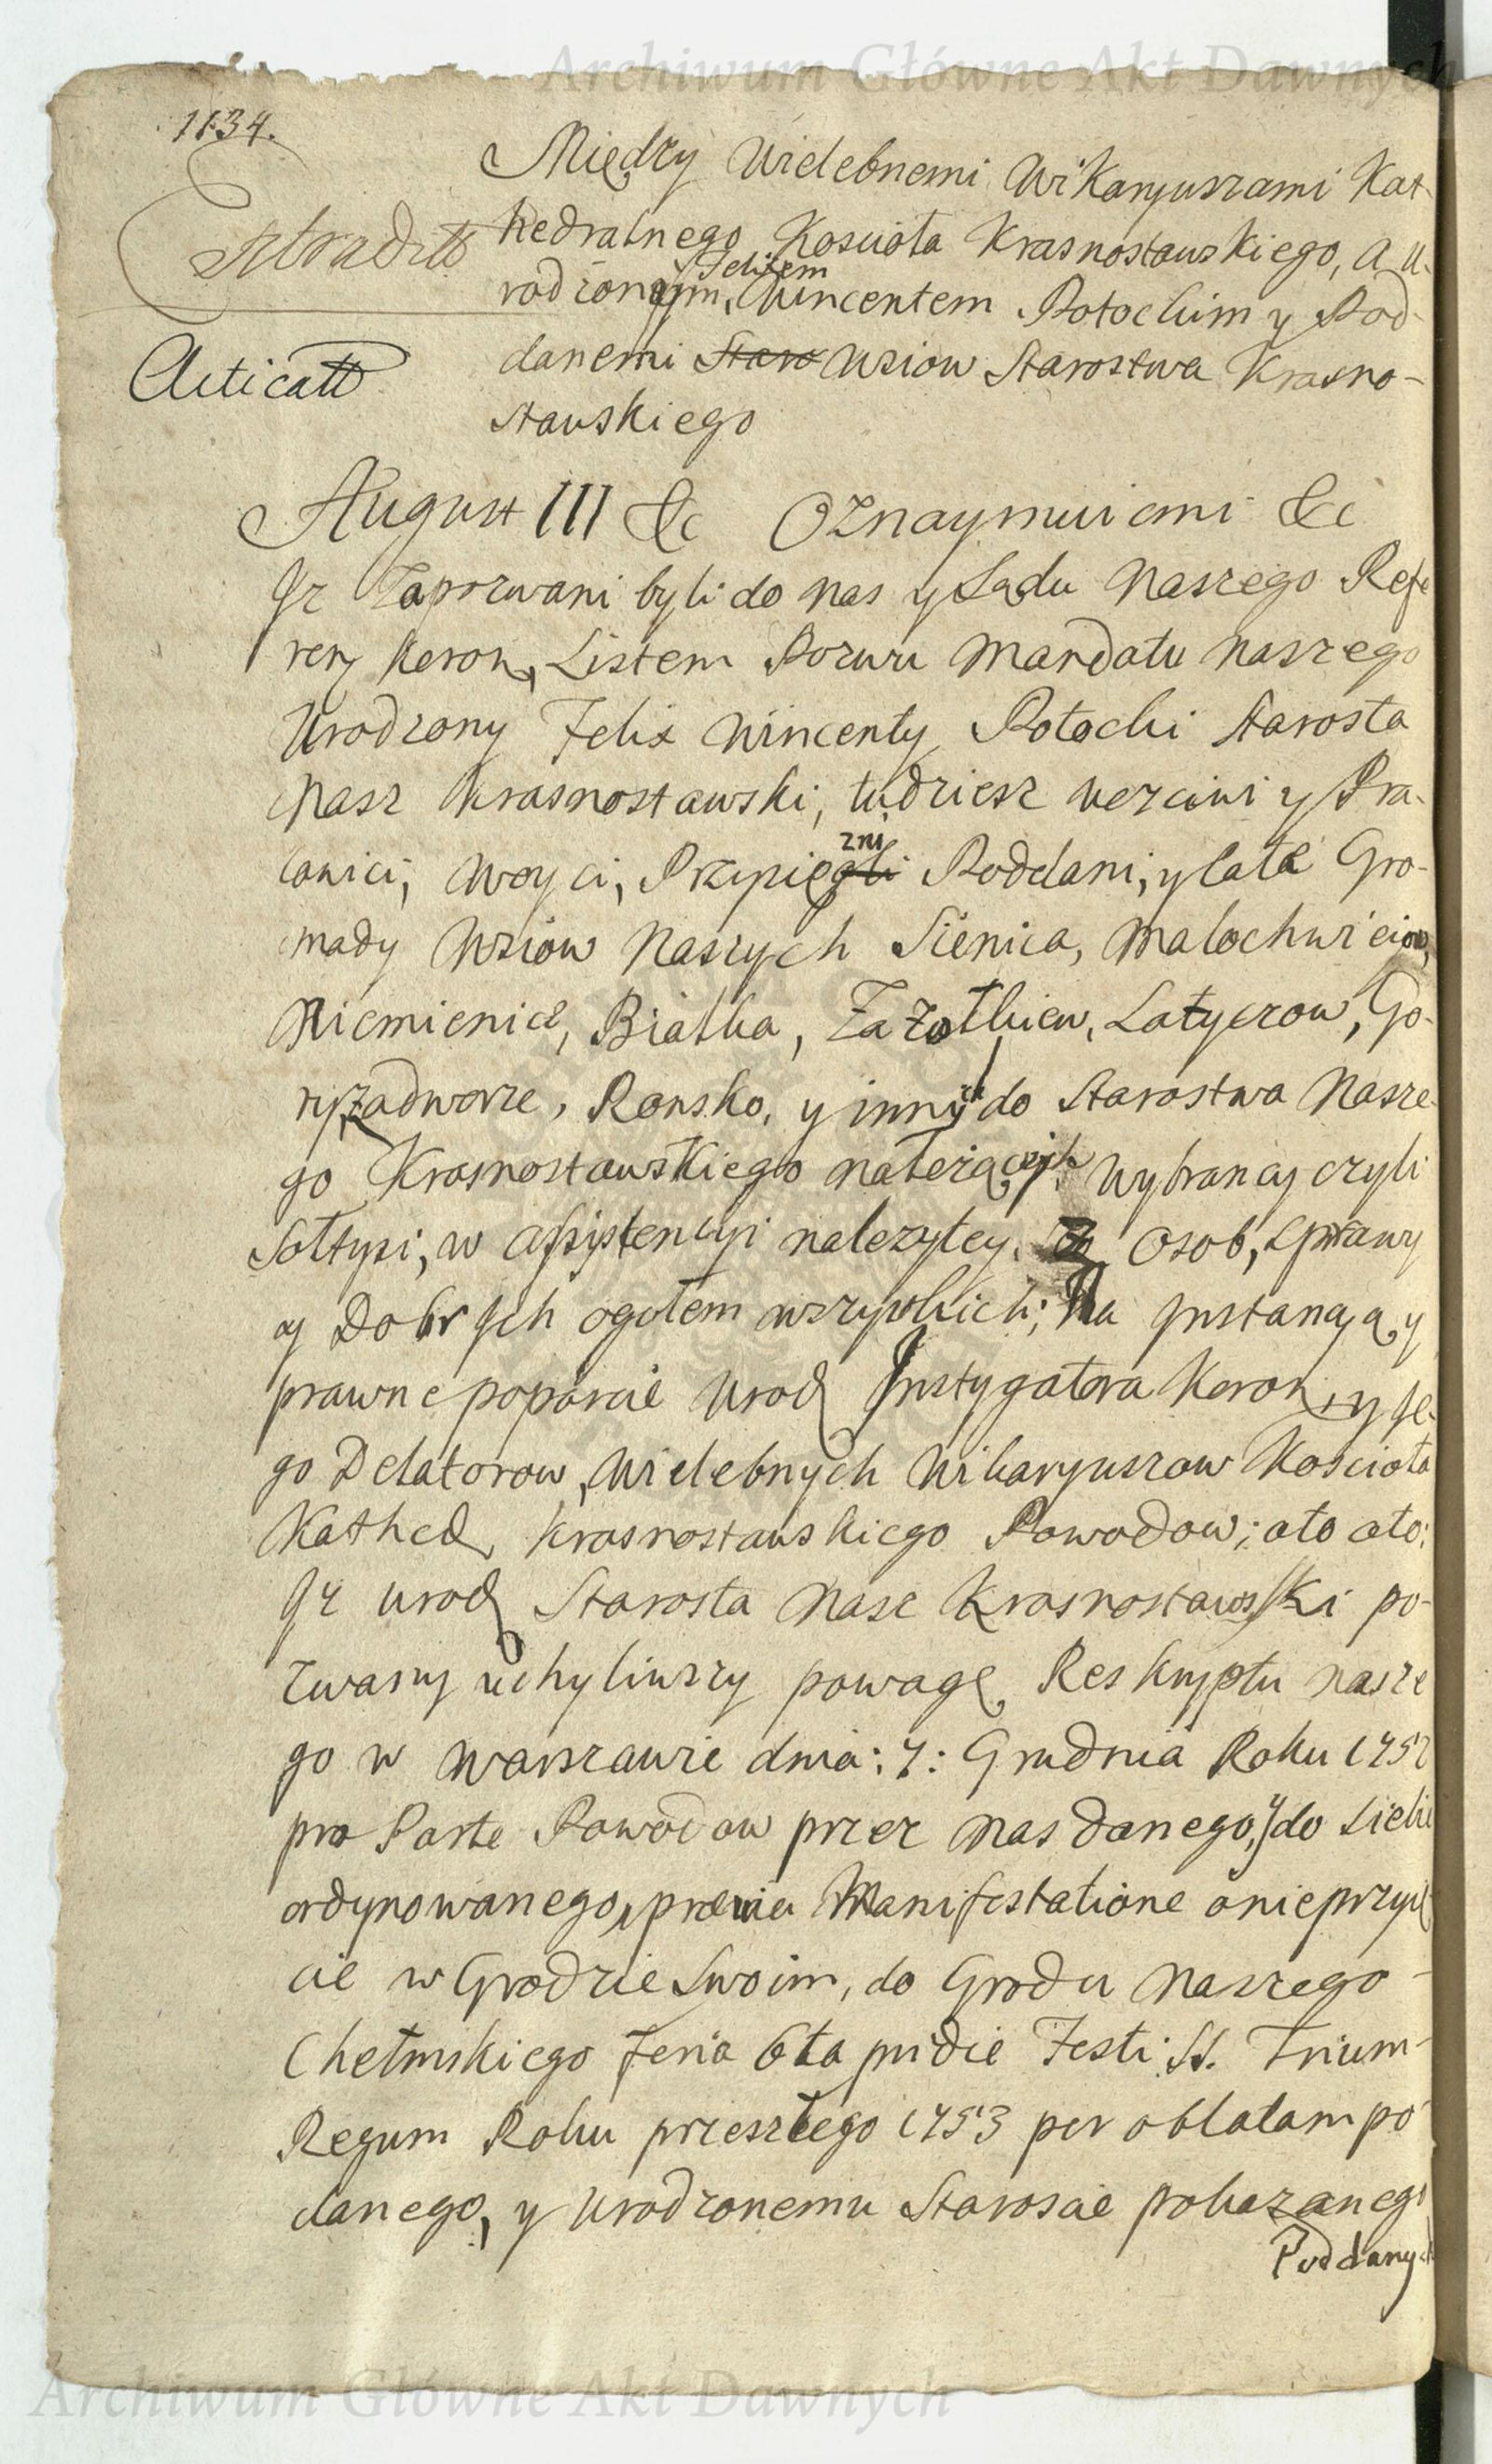 Archiwum Główne Akt Dawnych
1134.
Między Wielebnemi Wikaryuszami Kat-
hedralnego Koscioła Krasnostawskiego, a U-
rodzonym, Felixem Wincentem Potockim y Pod-
danemi Staro Wsiow Starostwa Krasno-
stawskiego
Extradit
Acticatt
August III &c Oznaymuiemi &c
Jz Zapozwani byli do nas y Sądu Naszego Refe
ren Koron, Listem Pozwu Mandatu naszego
Urodzony Felix Wincenty Potocki Starosta
Nasz Krasnostawski, tudziesz uczciwi y Pra-
cowici, Woyci, Przysięgli zni Poddani, y całe Gro-
mady Wsiow Naszych Sienica, Malochwieiow,
Niemienice, Białka, Zażołkiew, Latyczow, Go-
ryzadworze, Ronsko, y innych do Starostwa Nasze-
go Krasnostawskiego należących Wybrancy czyli
Sołtysi, w assystencyi należytey, z Osob, Sprawy
y Dobr Ich ogułem wszystkich; Na Jnstancyą y
prawne poparcie Urod Jnstygatora Koron, y Je-
go Delatorow, Wielebnych Wikaryuszow Koscioła
Kathed Krasnostawskiego Powodow; oto oto:
Jz Urod Starosta Nasz Krasnostawski po-
zwany uchyliwszy powagę Reskryptu nasze
go w Warszawie dnia: 7: Grudnia Roku 1752
pro Parte Powodow przez Nas danego, y do siebie
ordynowanego, prævia Manifestatione o nieprzyię
cie w Grodzie Swoim, do Grodu Naszego
Chełmskiego Feria 6ta pridie Festi SS. Trium-
Regum Roku przeszłego 1753 per oblatam po-
danego, y Urodzonemu Staroscie pokazanego
Poddanych
Archiwum Główne Akt Dawnych